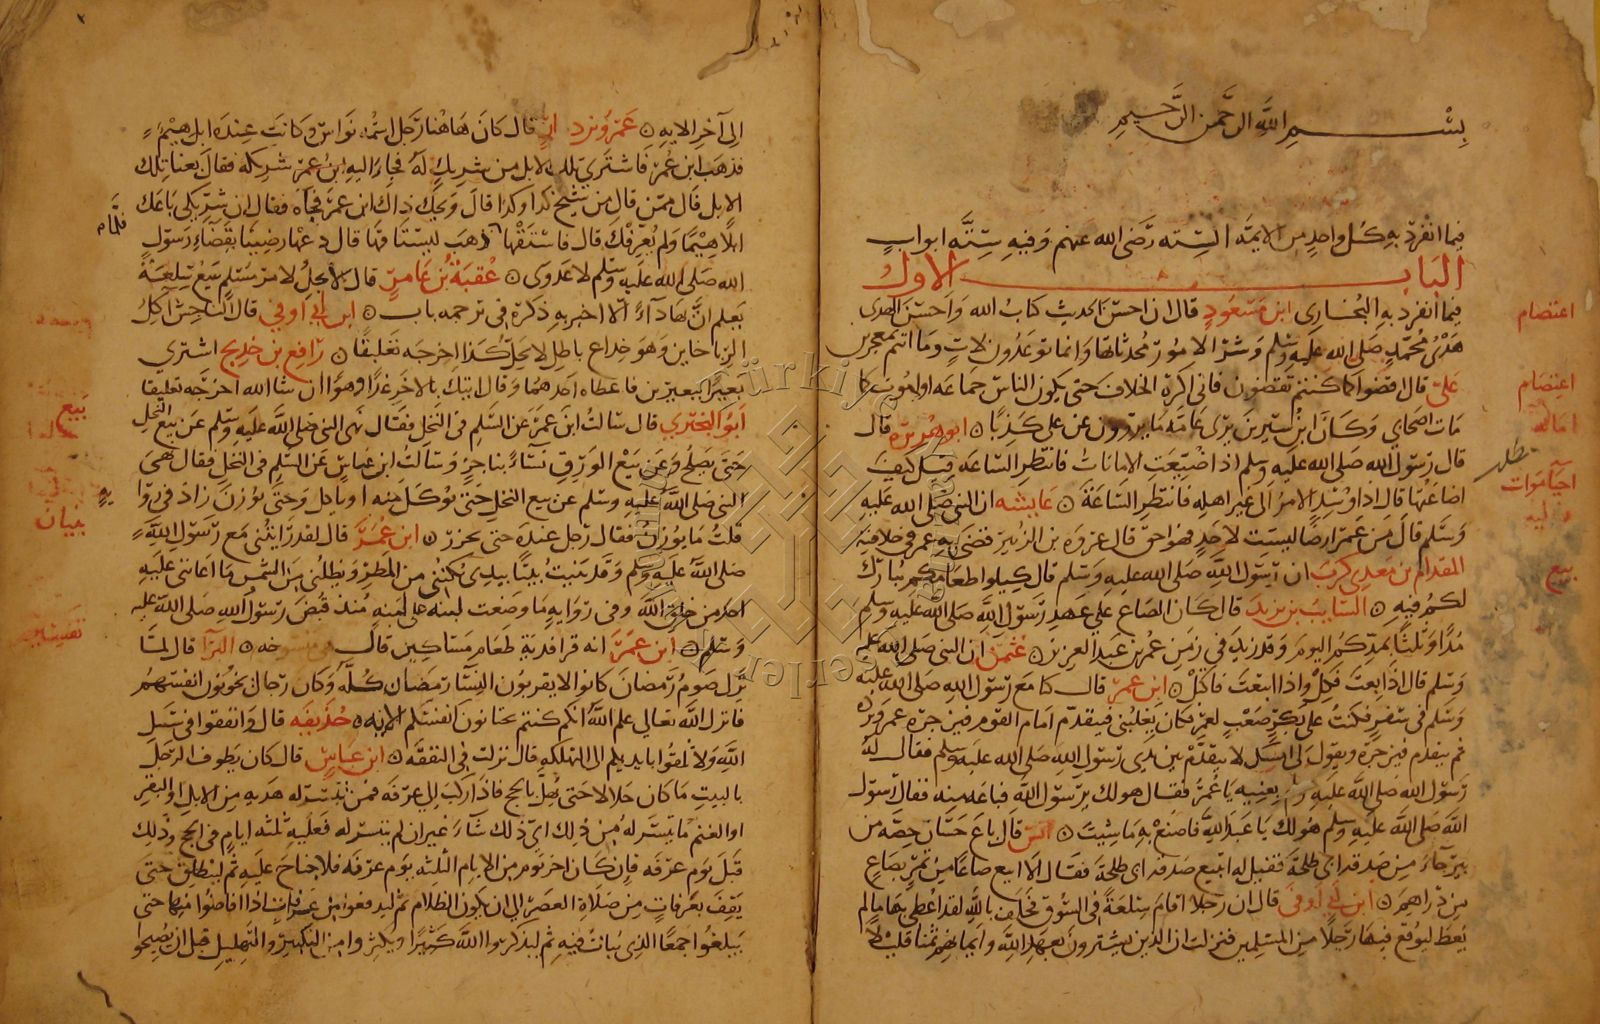 بسم الله الرحمن الرحيم
فيما انفرد به كل واحد من الايمة الستة رضى الله عنهم وفيه ستة ابواب
الباب الاول
فيما انفرد به البخارى ابن مسعود قال ان احسن الحديث كتاب الله واحسن الهدى
هدى محمد صلى الله عليه وسلم وشر الامور محدثاتها وانما توعدون لات وما انتم بمعجزين
على قال اقضوا كما كنتم تقضون فانى اكره الخلاف حتى يكون الناس جماعه او اموت كما
مات اصحابي وكان ابن سيرين يرى عامة ما يروون عن على كذبا ابو هريرة قال
قال رسول الله صلى الله عليه وسلم اذا ضيعت الامانات فانتظر الساعه قيل كيف
اضاعتها قال اذا وسد الامر الى غير اهله فانتظر الساعة عايشه ان النبي صلى الله عليه
وسلم قال من عمر ارضا ليست لاحد فهو احق قال عروه بن الزبير قضى به عمر في خلافته
المقدام بن معدى كرب ان رسول الله صلى الله عليه وسلم قال كيلوا طعامكم يبارك
لكم فيه السايب بن يزيد قال كان الصاع على عهد رسول الله صلى الله عليه وسلم
مدا وثلثا بمدكم اليوم وقد زيد في زمن عمر بن عبد العزيز عثمن ان النبى صلى الله عليه
وسلم قال اذا بعت فكل واذا ابتعت فاكتل ابن عمر قال كنا مع رسول الله صلى الله عليه
وسلم في سفر فكنت على بكر صعب لعمر فكان يغلبني فيتقدم امام القوم فيزجره عمر ويرده
ثم يتقدم فيزجره ويقول لى امسكه لا يتقدم بين يدى رسول الله صلى الله عليه وسلم فقال له
رسول الله صلى الله عليه وسلم بعنيه يا عمر فقال هو لك يرسول الله فباعه منه فقال رسول
الله صلى الله عليه وسلم هو لك يا عبد الله فاصنع به ما شيت انس قال باع حسان حصته من
بيرحاء من صدقة ابى طلحة فقيل له اتبيع صدقة ابى طلحة فقال الا ابيع صاعا من تمر بصاع
من دراهم ابن ابى اوفى قال ان رجلا اقام سلعة في السوق فحلف بالله لقد اعطى بها ما لم
يعط ليوقع فيها رجلا من المسلمين فنزلت ان الذين يشترون بعهد الله وايمانهم ثمنا قليلا
اعتصام
اعتصام
احيا موات
بيع
الى آخر الايه عمرو بن دينار قال كان هاهنا رجل اسمه نواس وكانت عنده ابل هيم
فذهب ابن عمر فاشترى تلك الابل من شريك له فجاء اليه شريكه فقال بعنا تلك
الابل قال ممن قال من شيخ كذا وكذا قال ويحك ذاك ابن عمر فجاه فقال ان شريكي باعك
ابلا هيما ولم يعرفك قال فاستقها فلما ذهب ليستاقها قال دعها رضينا بقضاء رسول
الله صلى الله عليه وسلم لا عدوى عقبة بن عامر قال لا يحل لامرء مسلم يبيع سلعة
يعلم ان بها داء الا اخبر به ذكره في ترجمه باب ابن ابى اوفى قال الناجش آكل
الربا خاين وهو خداع باطل لا يحل كذا اخرجه تعليقا رافع بن خديج اشترى
بعيرا ببعيرين فاعطاه احدهما وقال اتيك بالاخر غدا رهوا ان شا الله اخرجه تعليقا
ابو البخترى قال سالت ابن عمر عن السلم في النخل فقال نهى النبى صلى الله عليه وسلم عن بيع النخل
حتى يصلح وعن بيع الورق نساء بناجز وسالت ابن عباس عن السلم في النخل فقال نهى
النبي صلى الله عليه وسلم عن بيع النخل حتى يوكل منه او ياكل وحتى يوزن زاد في روا
قلت ما يوزن فقال رجل عنده حتى يحزر ابن عمر قال لقد رايتنى مع رسول الله
صلى الله عليه وسلم وقد بنيت بيتا بيدى يكننى من المطر ويظلنى من الشمس ما اعانني عليه
احد من خلق الله وفى روايه ما وضعت لبنه على لبنه منذ قبض رسول الله صلى الله عليه
وسلم ابن عمر انه قرا فدية طعام مساكين قال هي منسوخه البرا قال لما
نزل صوم رمضان كانوا لا يقربون النسا رمضان كله وكان رجال يخونون انفسهم
فانزل الله تعالى علم الله انكم كنتم تختانون انفسكم الايه حذيفه قال وانفقوا في سبيل
الله ولا تلقوا بايديكم الى التهلكه قال نزلت في النفقه ابن عباس قال كان يطوف الرجل
بالبيت ما كان حلالا حتى يهل بالحج فاذا ركب الى عرفه فمن تيسر له هديه من الابل او البقر
او الغنم ما تيسر له من ذلك اي ذلك شاء غير ان لم يتيسر له فعليه ثلثه ايام في الحج وذلك
قبل يوم عرفه فان كان اخر يوم من الايام الثلثه يوم عرفه فلا جناح عليه ثم لينطلق حتى
يقف بعرفات من صلاة العصر الى ان يكون الظلام ثم ليدفعوا من عرفات اذا افاضوا منها حتى
يبلغوا جمعا الذى يبات فيه ثم ليذكروا الله كثيرا ويكثروا من التكبير والتهليل قبل ان يصبحوا
بيع
بنيان
تفسير